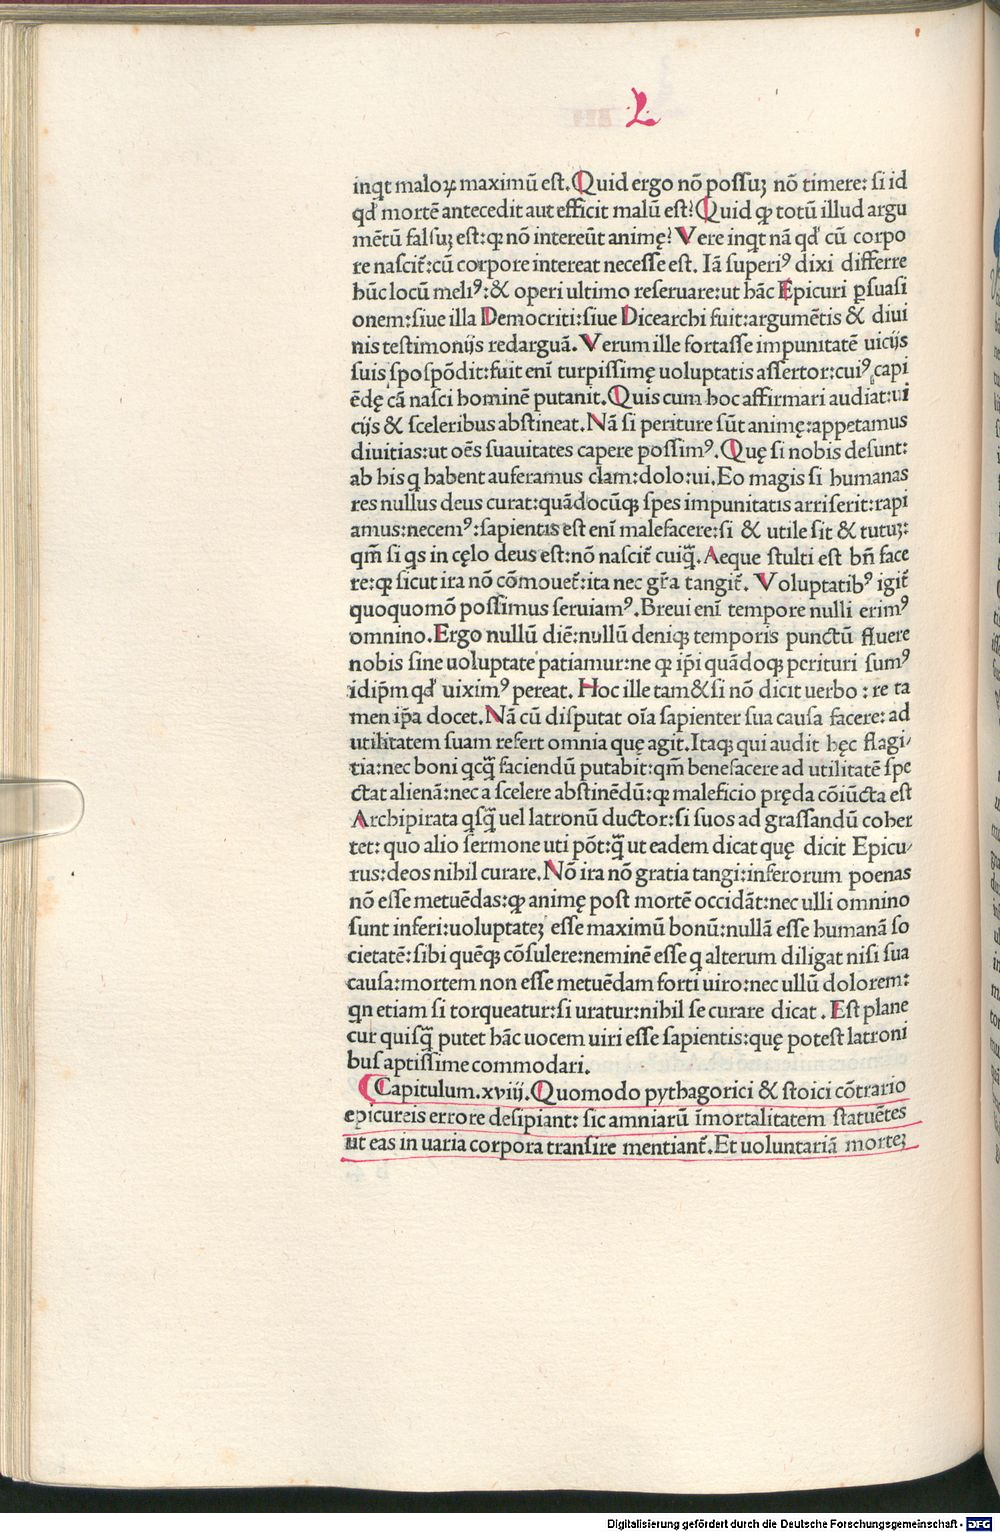 L
inqt maloꝝ maximū est. Quid ergo nō possuʒ nō timere: si id
qd' mortē antecedit aut efficit malū est? Quid ꝙ totū illud argu
mētū falsuʒ est: ꝙ nō intereūt animę? Vere inqt nā qd' cū corpo
re nascit̃: cū corpore intereat necesse est. Iā superiꝰ dixi differre
hūc locū meliꝰ: & operi ultimo reseruare: ut hāc Epicuri ꝑsuasi
onem: siue illa Democriti: siue Dicearchi fuit: argumētis & diui
nis testimonijs redarguā. Verum ille fortasse impunitatē uicijs
suis spospōdit: fuit enī turpissimę uoluptatis assertor: cuiꝰ capi
ēdę cā nasci hominē putanit. Quis cum hoc affirmari audiat: ui
cijs & sceleribus abstineat. Nā si periture sūt animę: appetamus
diuitias: ut oēs suauitates capere possimꝰ. Quę si nobis desunt:
ab his q habent auferamus clam: dolo: ui. Eo magis si humanas
res nullus deus curat: quādocūqꝫ spes impunitatis arriserit: rapi
amus: necemꝰ: sapientis est enī malefacere: si & utile sit & tutuʒ:
qm̄ si qs in cęlo deus est: nō nascit̃ cuiq̄. Aeque stulti est bn̄ face
re: ꝙ sicut ira nō cōmouet̃: ita nec gr̃a tangit̃. Voluptatibꝰ igit̃
quoquomō possimus seruiamꝰ. Breui enī tempore nulli erimꝰ
omnino. Ergo nullū diē: nullū deniqꝫ temporis punctū fluere
nobis sine uoluptate patiamur: ne ꝙ ip̄i quādoqꝫ perituri sumꝰ
idip̄m qd' uiximꝰ pereat. Hoc ille tam&si nō dicit uerbo: re ta
men ip̄a docet. Nā cū disputat oīa sapienter sua causa facere: ad
utilitatem suam refert omnia quę agit. Itaqꝫ qui audit hęc flagi/
tia: nec boni qcq̄ faciendū putabit: qm̄ benefacere ad utilitatē spe
ctat alienā: nec a scelere abstinēdū: ꝙ maleficio pręda cōiūcta est
Archipirata qsq̄ uel latronū ductor: si suos ad grassandū cohor
tet: quo alio sermone uti pōt: q̄ ut eadem dicat quę dicit Epicu/
rus: deos nihil curare. Nō ira nō gratia tangi: inferorum poenas
nō esse metuēdas: ꝙ animę post mortē occidāt: nec ulli omnino
sunt inferi: uoluptateʒ esse maximū bonū: nullā esse humanā so
cietatē: sibi quēqꝫ cōsulere: neminē esse q alterum diligat nisi sua
causa: mortem non esse metuēdam forti uiro: nec ullū dolorem:
qn etiam si torqueatur: si uratur: nihil se curare dicat. Est plane
cur quisq̄ putet hāc uocem uiri esse sapientis: quę potest latroni
bus aptissime commodari.
Capitulum. xviij. Quomodo pythagorici & stoici cōtrario
epicureis errore desipiant: sic amniarū īmortalitatem statuētes
ut eas in uaria corpora transire mentiant̃. Et uoluntariā morteʒ
Digitalisierung gefördert durch die Deutsche Forschungsgemeinschaft - DFG